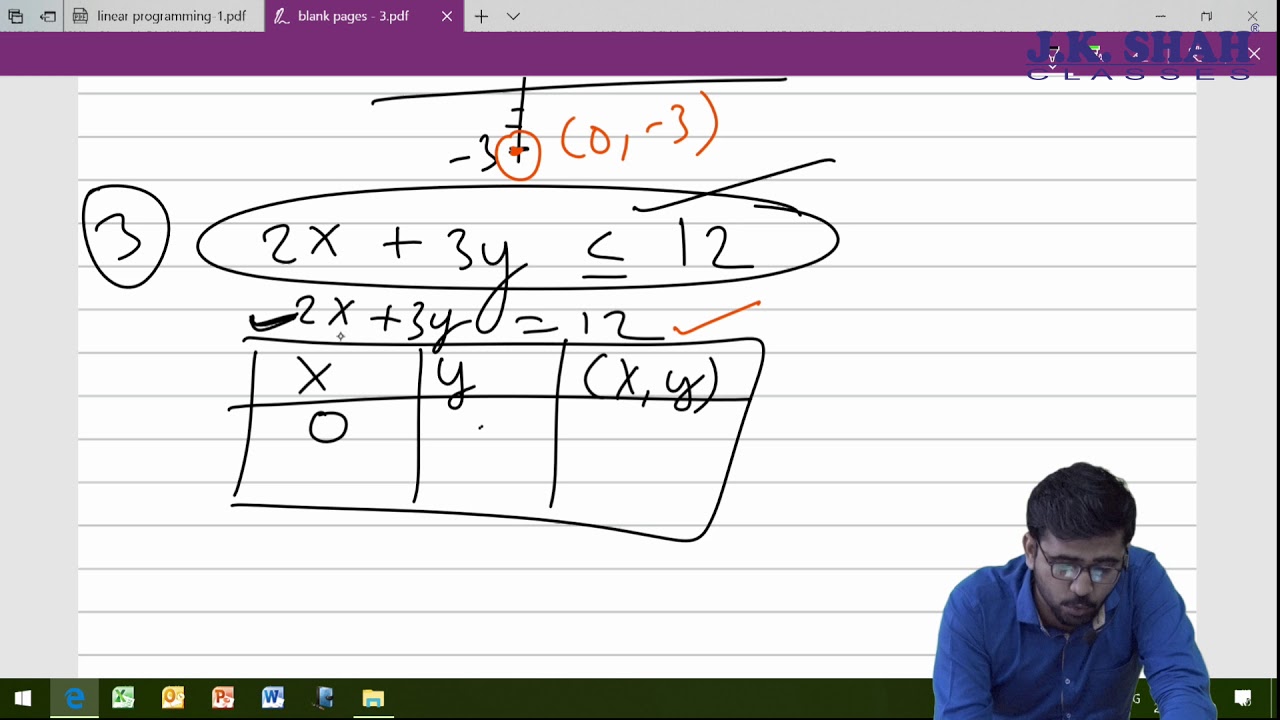 linear programming-1.pdf
blank pages - 3.pdf
J.K. SHAH®
CLASSES
-3 (0, -3)
3
2x + 3y ≤ 12
2x + 3y = 12
x y (x, y)
0
G
2